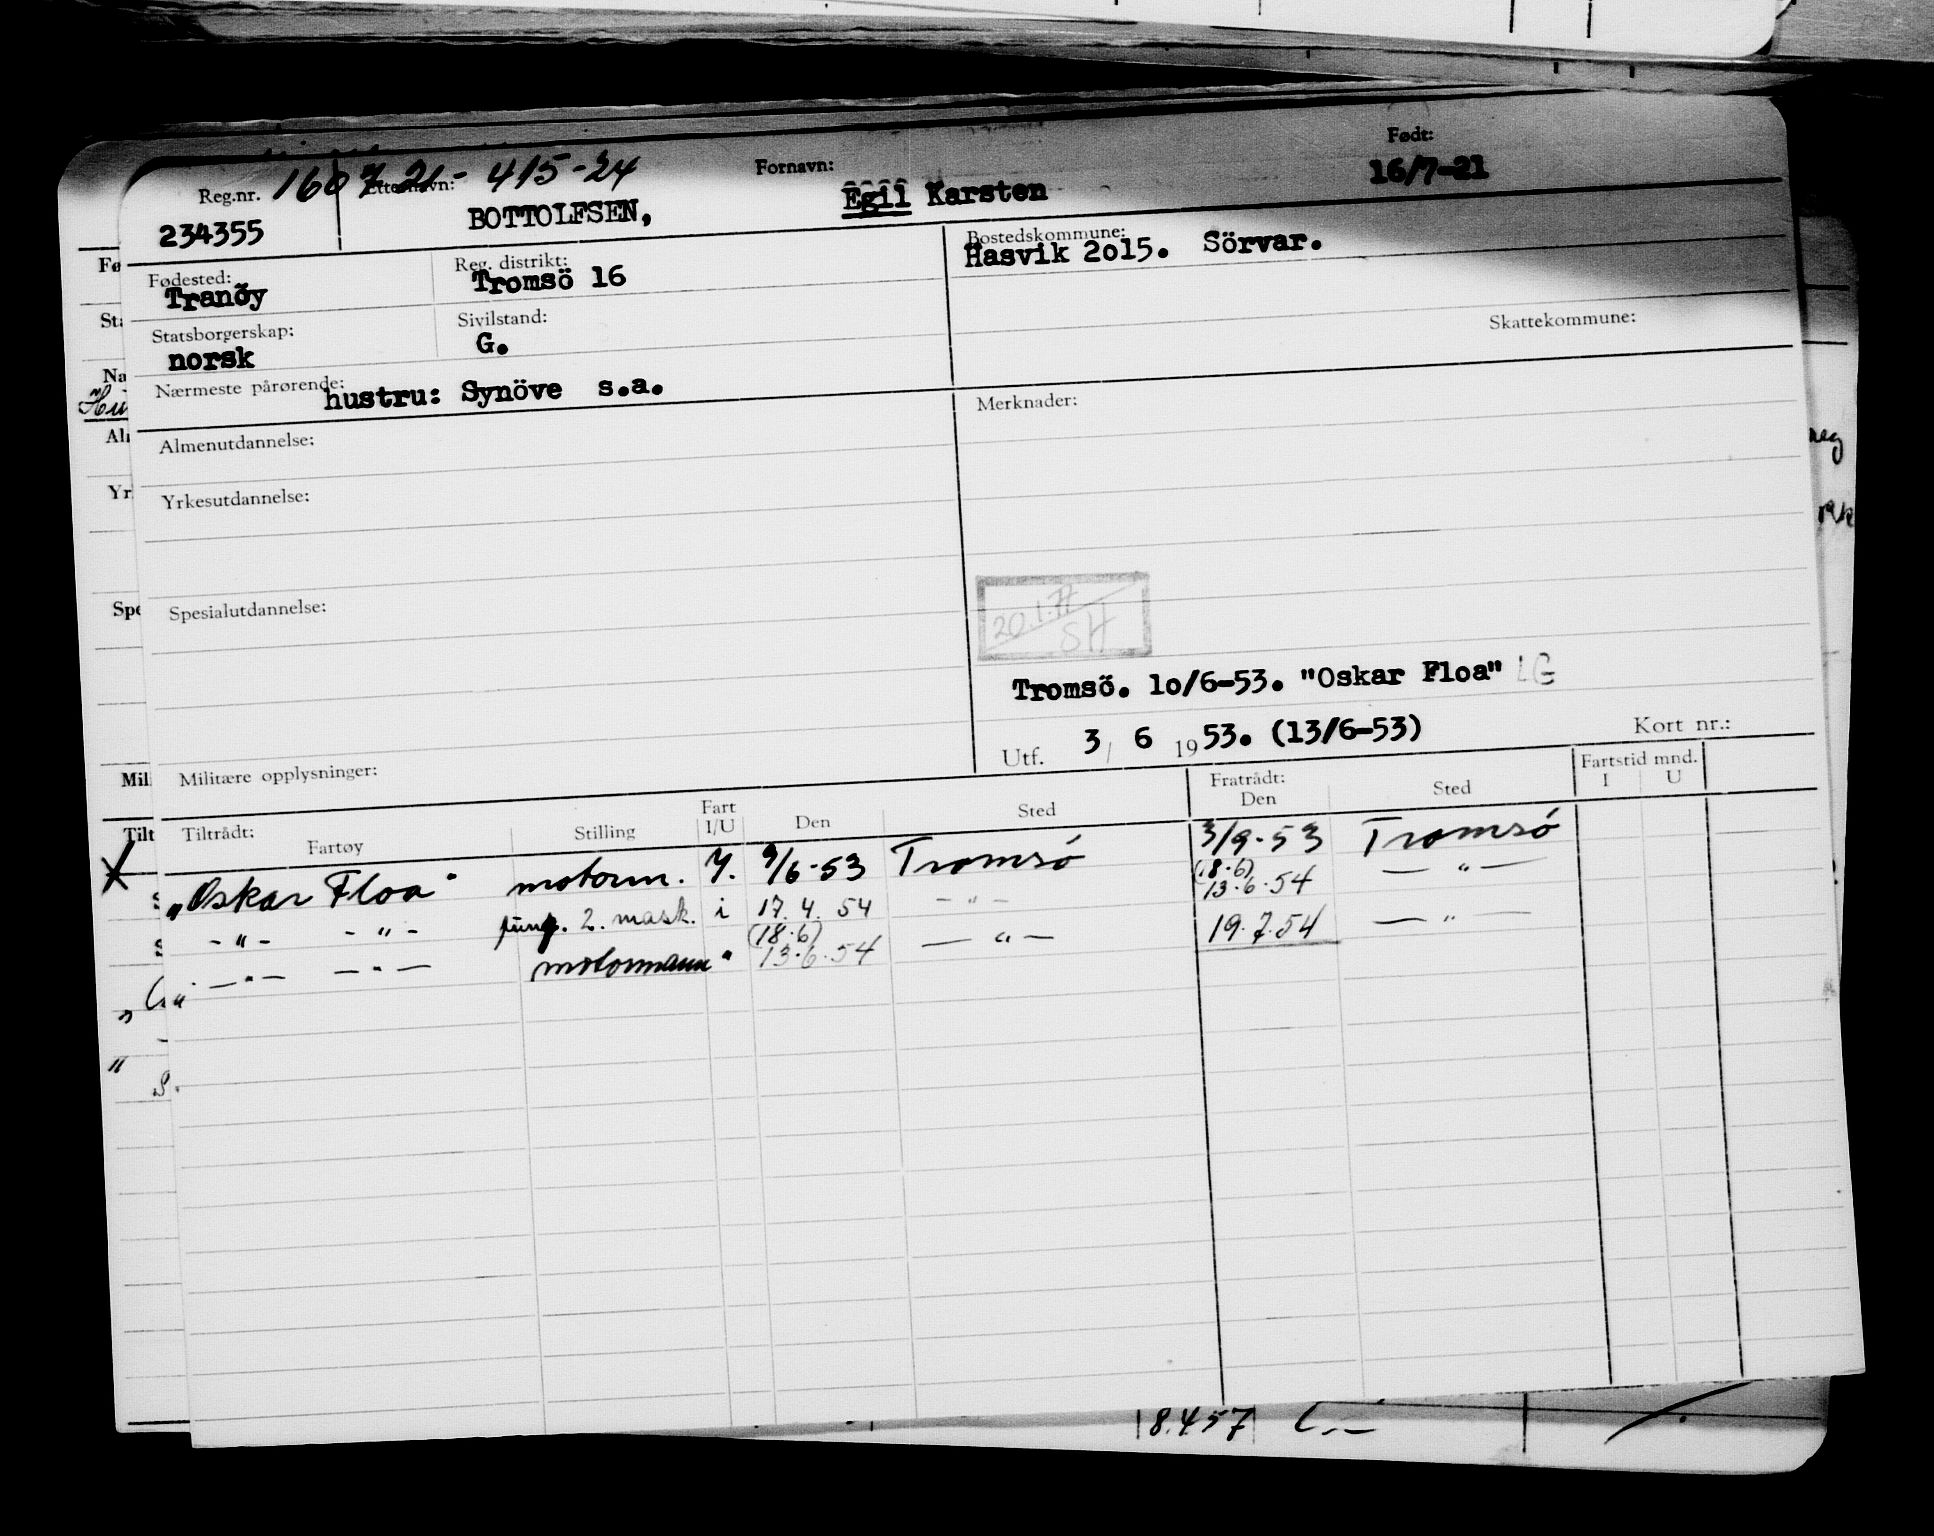 Reg.nr. 160721-415-24
Etternavn: Fornavn: Født:
234355 BOTTOLFSEN, Egil Karsten 16/7-21
Fødested: Reg. distrikt: Bostedskommune:
Tranöy Tromsö 16 Hasvik 2o15. Sörvar.
Statsborgerskap: Sivilstand: Skattekommune:
norsk G.
Nærmeste pårørende: hustru: Synöve s.a.
Almenutdannelse: Merknader:
Yrkesutdannelse:
Spesialutdannelse:
20.1.77
SH
Tromsö. 1o/6-53. "Oskar Floa" LG
Utf. 3/ 6 1953. (13/6-53) Kort nr.:
Militære opplysninger:
Tiltrådt: Fratrådt: Fartstid mnd.
Fartøy Stilling Fart I/U Den Sted Den Sted I U
„Oskar Floa" motorm. I. 9/6-53 Tromsö 3/9-53 Tromsö
- " - - " - fung. 2. mask. i 17. 4. 54 - " - (18.6) 13.6.54 — " —
— " — — " — motormann " (18.6) 13.6.54 — " — 19.7.54 — " —
Fø
Sta
Na
Hu
Alı
Yr
Spe
Mil
Tilt
8.4.57